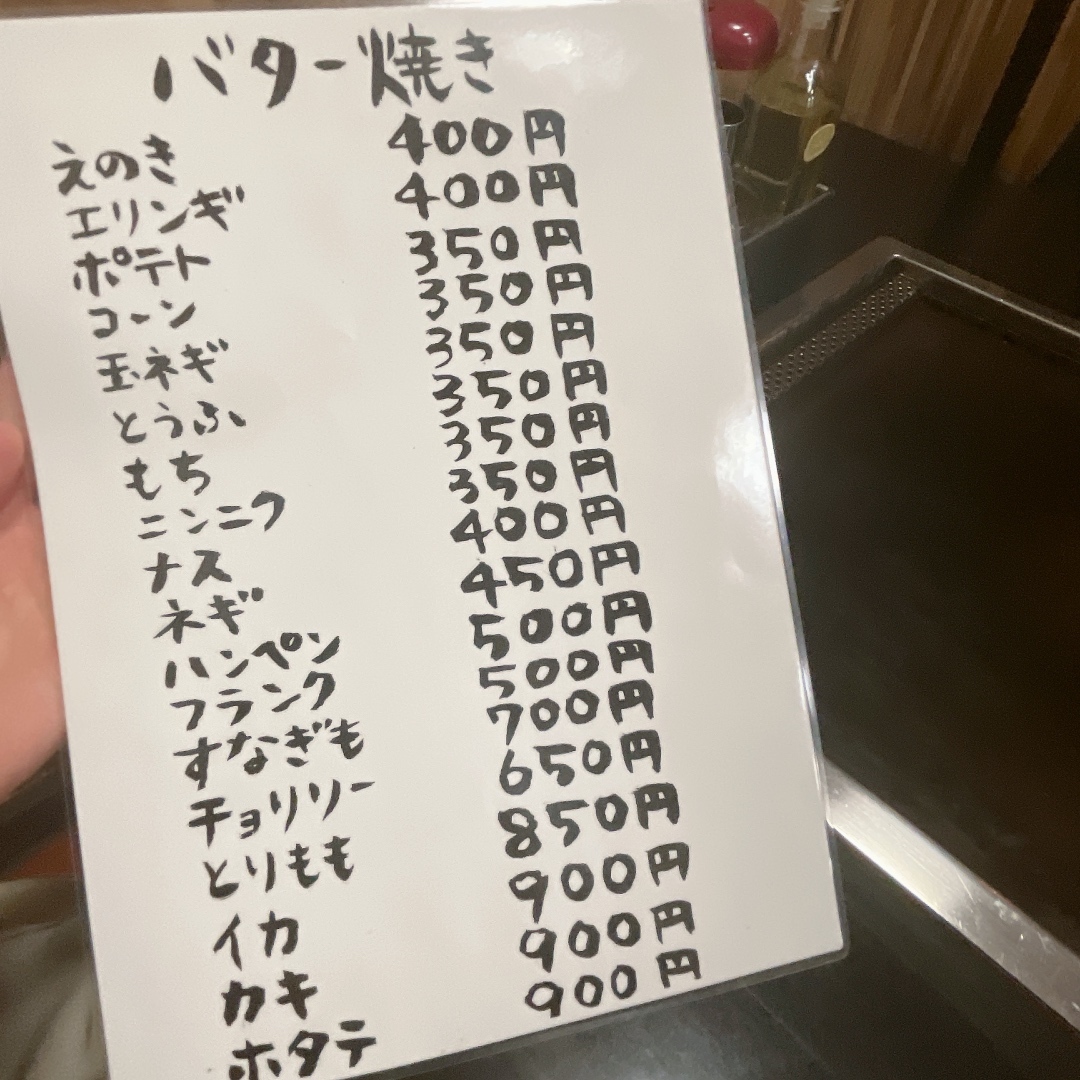 バター焼き
えのき 400円
エリンギ 400円
ポテト 350円
コーン 350円
玉ネギ 350円
とうふ 350円
もち 350円
ニンニク 350円
ナス 400円
ネギ 450円
ハンペン 500円
フランク 500円
すなぎも 700円
チョリソー 650円
とりもも 850円
イカ 900円
カキ 900円
ホタテ 900円